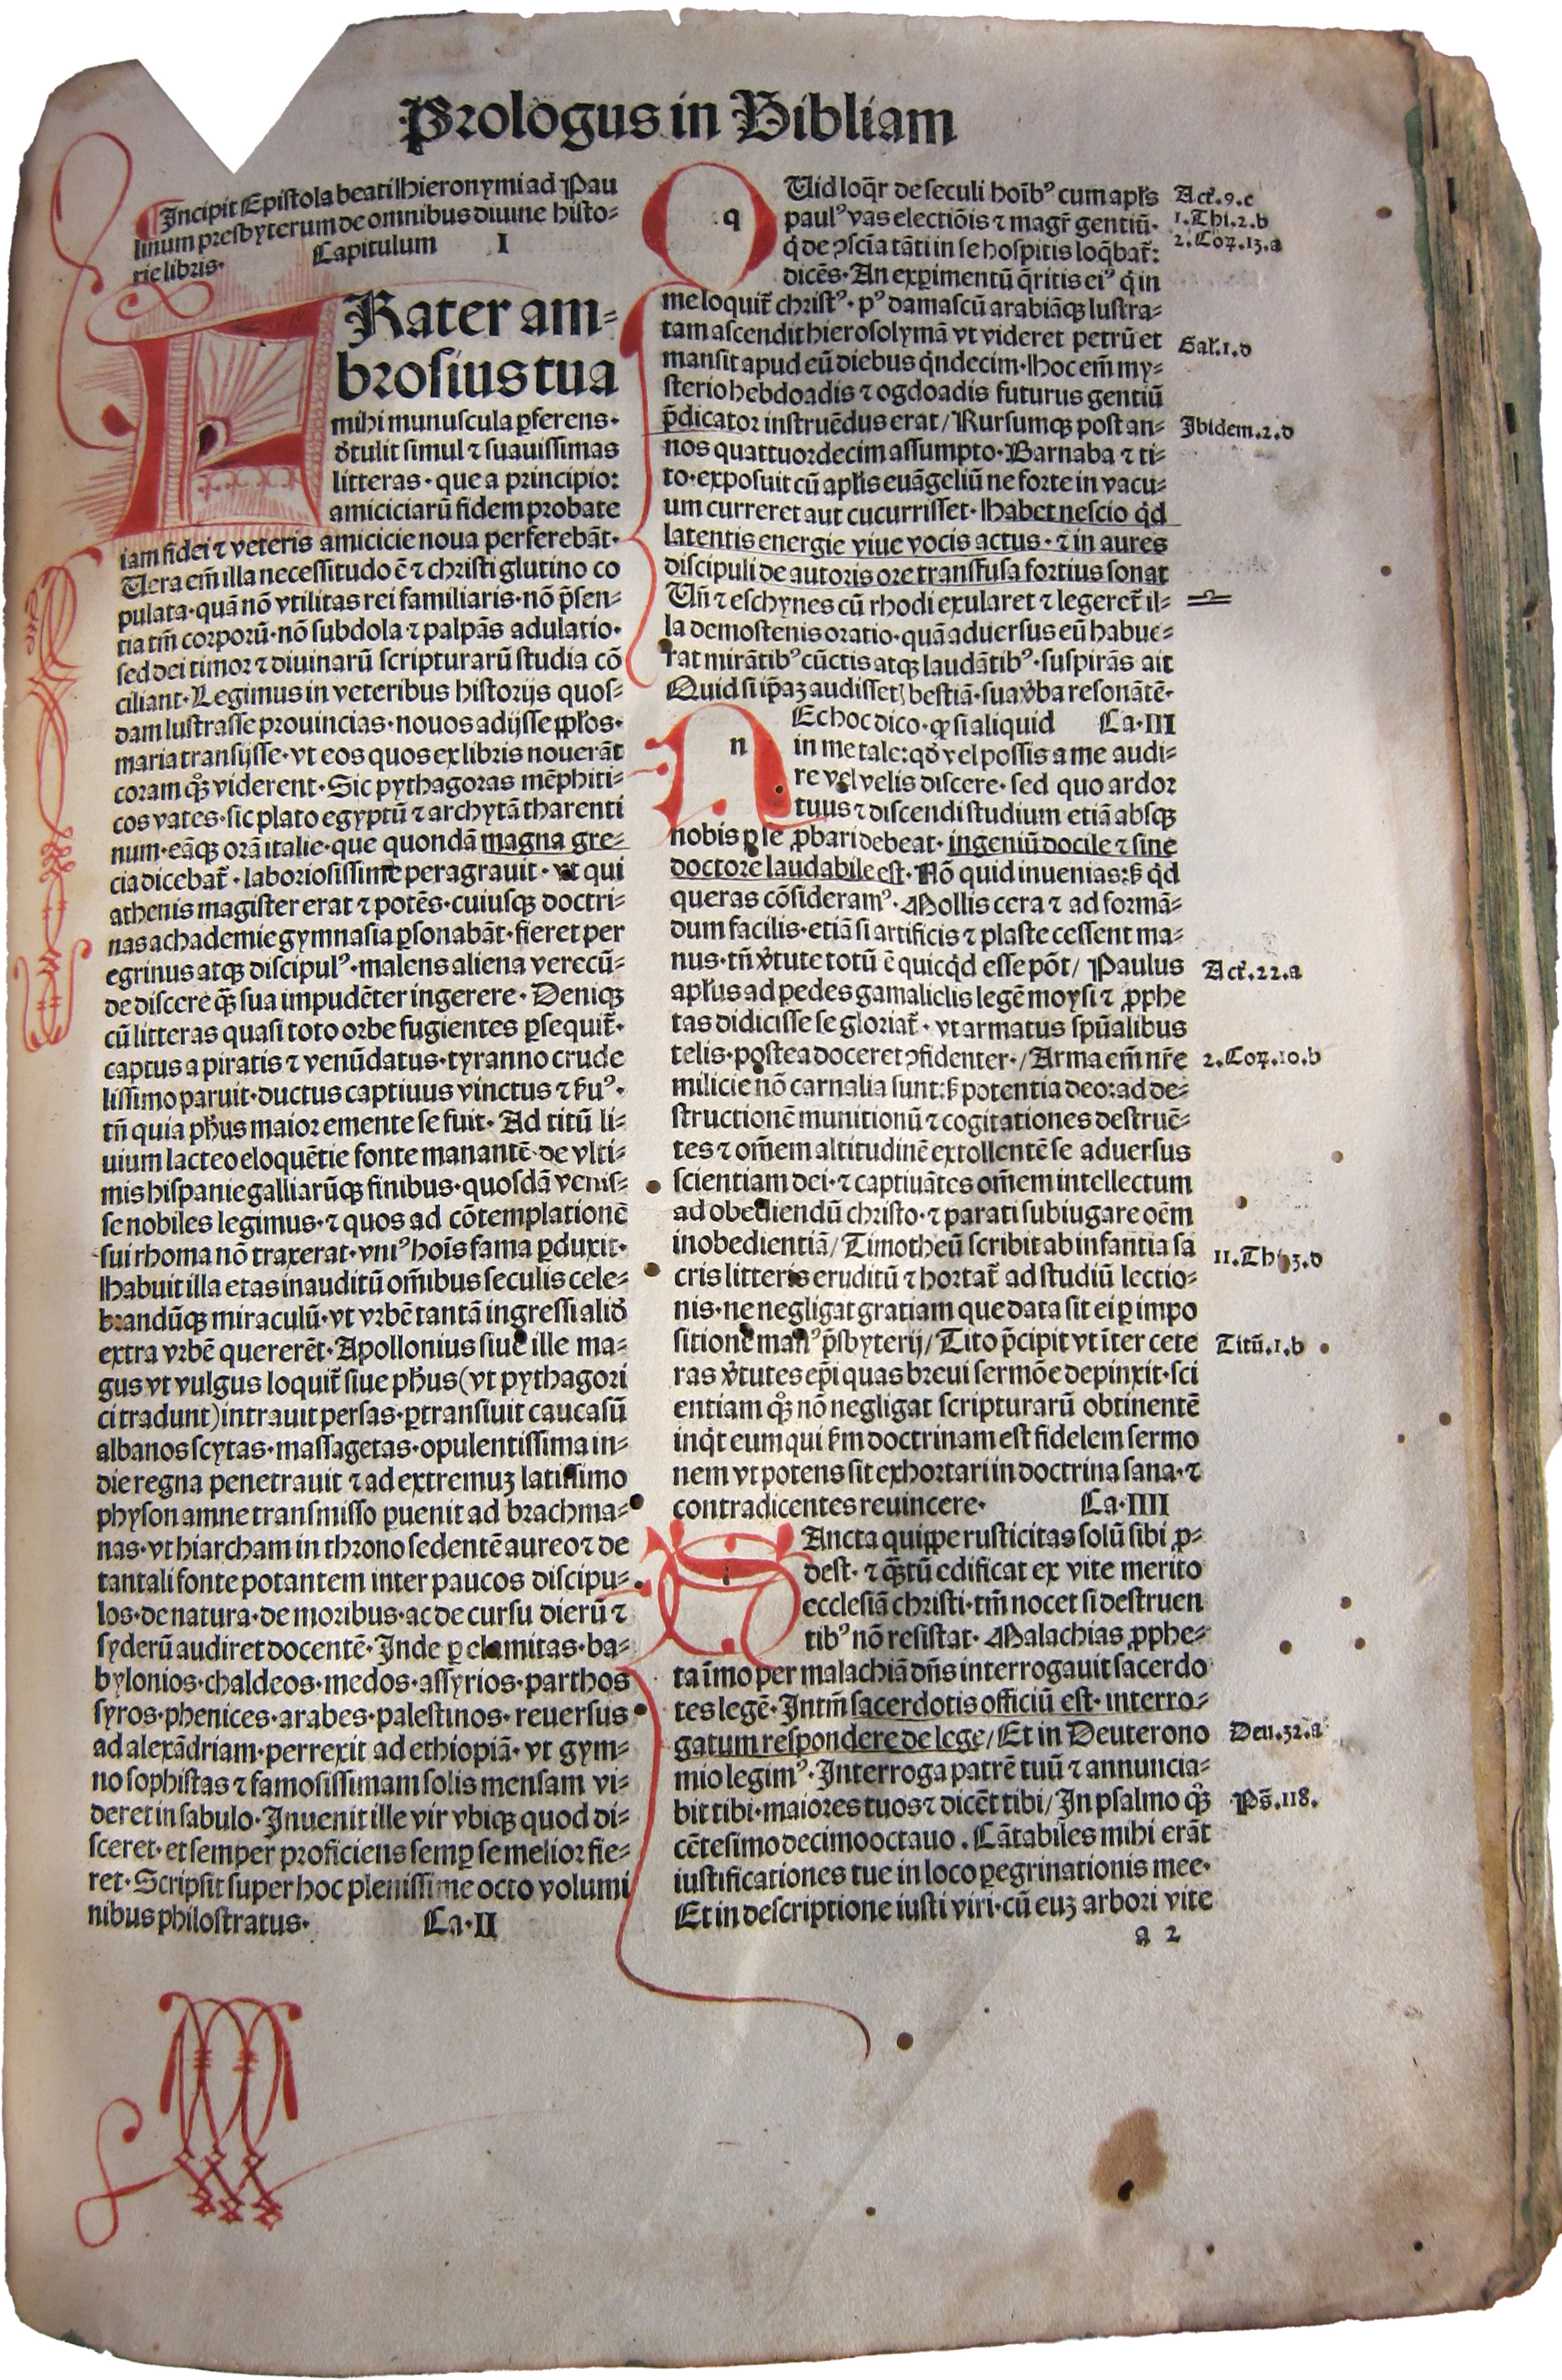 Prologus in Bibliam
Incipit Epistola beati Hieronymi ad Pau
linum presbyterum de omnibus diuine histo⸗
rie libris· Capitulum I
FRater am⸗
brosius tua
mihi munuscula ꝑferens·
dētulit simul ⁊ suauissimas
litteras· que a principio:
amiciciarū fidem probate
iam fidei ⁊ veteris amicicie noua perferebāt·
Uera em̄ illa necessitudo ē ⁊ christi glutino co
pulata· quā nō vtilitas rei familiaris· nō p̄sen⸗
tia tm̄ corporū· nō subdola ⁊ palpās adulatio·
sed dei timor ⁊ diuinarū scripturarū studia cō
ciliant· Legimus in veteribus historijs quos⸗
dam lustrasse prouincias· nouos adijsse pp̄los·
maria transijsse· vt eos quos ex libris nouerāt
coram qꝫ viderent· Sic pythagoras mēphiti⸗
cos vates· sic plato egyptū ⁊ archytā tharenti
num· eāqꝫ orā italie· que quondā magna gre⸗
cia dicebat̄· laboriosissime peragrauit· vt qui
athenis magister erat ⁊ potēs· cuiusqꝫ doctri⸗
nas achademie gymnasia ꝑsonabāt· fieret per
egrinus atqꝫ discipulꝰ· malens aliena verecū⸗
de discere qꝫ sua impudēter ingerere· Deniqꝫ
cū litteras quasi toto orbe fugientes ꝑsequit̄·
captus a piratis ⁊ venūdatus· tyranno crude
lissimo paruit· ductus captiuus vinctus ⁊ ẜuꝰ·
tn̄ quia ph̄us maior emente se fuit· Ad titū li⸗
uium lacteo eloquētie fonte manantē· de vlti⸗
mis hispanie galliarūqꝫ finibus· quosdā venis⸗
se nobiles legimus· ⁊ quos ad cōtemplationē
sui rhoma nō traxerat· vniꝰ hoīs fama ꝑduxit·
Habuit illa etas inauditū om̄ibus seculis cele⸗
brandūqꝫ miraculū· vt vrbē tantā ingressi aliđ
extra vrbē quererēt· Apollonius siue ille ma⸗
gus vt vulgus loquit̄ siue ph̄us (vt pythagori
ci tradunt) intrauit persas· ꝑtransiuit caucasū
albanos scytas· massagetas· opulentissima in⸗
die regna penetrauit ⁊ ad extremuꝫ latissimo
physon amne transmisso ꝑuenit ad brachma⸗
nas· vt hiarcham in throno sedentē aureo ⁊ de
tantali fonte potantem inter paucos discipu⸗
los· de natura· de moribus· ac de cursu dierū ⁊
syderū audiret docentē· Inde ꝑ elamitas· ba⸗
bylonios· chaldeos· medos· assyrios· parthos
syros· phenices· arabes· palestinos· reuersus
ad alexādriam· perrexit ad ethiopiā· vt gym⸗
no sophistas ⁊ famosissimam solis mensam vi⸗
deret in sabulo· Inuenit ille vir vbiqꝫ quod di⸗
sceret· et semper proficiens semꝑ se melior fie⸗
ret· Scripsit super hoc plenissime octo volumi
nibus philostratus· Ca·II
q Uid loqr̄ de seculi hoīb⁹ cum apl̄s
paulꝰ vas electiōis ⁊ magr̄ gentiū·
q̄ de ꝯscīa tāti in se hospitis loq̄bat̄:
dicēs· An exꝑimentū q̄ritis eiꝰ q̄ in
me loquit̄ christꝰ· pꝰ damascū arabiāqꝫ lustra⸗
tam ascendit hierosolymā vt videret petrū et
mansit apud eū diebus q̄ndecim· Hoc em̄ my⸗
sterio hebdoadis ⁊ ogdoadis futurus gentiū
p̄dicator instruēdus erat/ Rursumqꝫ post an⸗
nos quattuordecim assumpto· Barnaba ⁊ ti⸗
to· exposuit cū apl̄is euāgeliū ne forte in vacu⸗
um curreret aut cucurrisset· Habet nescio qd̄
latentis energie viue vocis actus· ⁊ in aures
discipuli de autoris ore transfusa fortius sonat
Un̄ ⁊ eschynes cū rhodi exularet ⁊ legeret̄ il⸗
la demostenis oratio· quā aduersus eū habue⸗
rat mirātib⁹ cūctis atqꝫ laudātib⁹· suspirās ait
Quid si ip̄aꝫ audissetꝭ bestiā· sua v̄ba resonātē·
n Ec hoc dico· ꝙ si aliquid Ca·III
in me tale: qđ vel possis a me audi⸗
re vel velis discere· sed quo ardor
tuus ⁊ discendi studium etiā absqꝫ
nobis ꝑ se ꝓbari debeat· ingeniū docile ⁊ sine
doctore laudabile est· Nō quid inuenias: ẜ qd̄
queras cōsideramꝰ· Mollis cera ⁊ ad formā⸗
dum facilis· etiā si artificis ⁊ plaste cessent ma⸗
nus· tn̄ v̄tute totū ē quicqd̄ esse pōt/ Paulus
apl̄us ad pedes gamalielis legē moysi ⁊ ꝓphe
tas didicisse se gloriat̄· vt armatus spūalibus
telis· postea doceret ꝯfidenter·/ Arma em̄ nr̄e
milicie nō carnalia sunt: ẜ potentia deo: ad de⸗
structionē munitionū ⁊ cogitationes destruē⸗
tes ⁊ om̄em altitudinē extollentē se aduersus
scientiam dei· ⁊ captiuātes om̄em intellectum
ad obediendū christo· ⁊ parati subiugare oēm
inobedientiā/ Timotheū scribit ab infantia sa
cris litteris eruditū ⁊ hortat̄ ad studiū lectio⸗
nis· ne negligat gratiam que data sit ei ꝑ impo
sitionē manꝰ p̄sbyterij/ Tito p̄cipit vt īter cete
ras v̄tutes ep̄i quas breui sermōe depinxit· sci
entiam qꝫ nō negligat scripturarū obtinentē
inqt̄ eum qui ẜm doctrinam est fidelem sermo
nem vt potens sit exhortari in doctrina sana· ⁊
contradicentes reuincere· Ca·IIII
Ancta quippe rusticitas solū sibi ꝓ⸗
dest· ⁊ qꝫtū edificat ex vite merito
ecclesiā christi· tm̄ nocet si destruen
tib⁹ nō resistat· Malachias ꝓphe⸗
ta īmo per malachiā dn̄s interrogauit sacerdo
tes legē· Intm̄ sacerdotis officiū est· interro⸗
gatum respondere de lege/ Et in Deuterono
mio legimꝰ· Interroga patrē tuū ⁊ annuncia⸗
bit tibi· maiores tuos ⁊ dicēt tibi/ In psalmo qꝫ
cētesimo decimooctauo. Cātabiles mihi erāt
iustificationes tue in loco ꝑegrinationis mee·
Et in descriptione iusti viri· cū euꝫ arbori vite
a 2
Act̄.9.c
1.Thi.2.b
2.Coꝝ.13.a
Gal̄.1.d
Ibidem.2.d
Act̄.22.a
2.Coꝝ.10.b
II.Th 3.d
Titū.1.b
Deu.32.a
Ps̄.118.